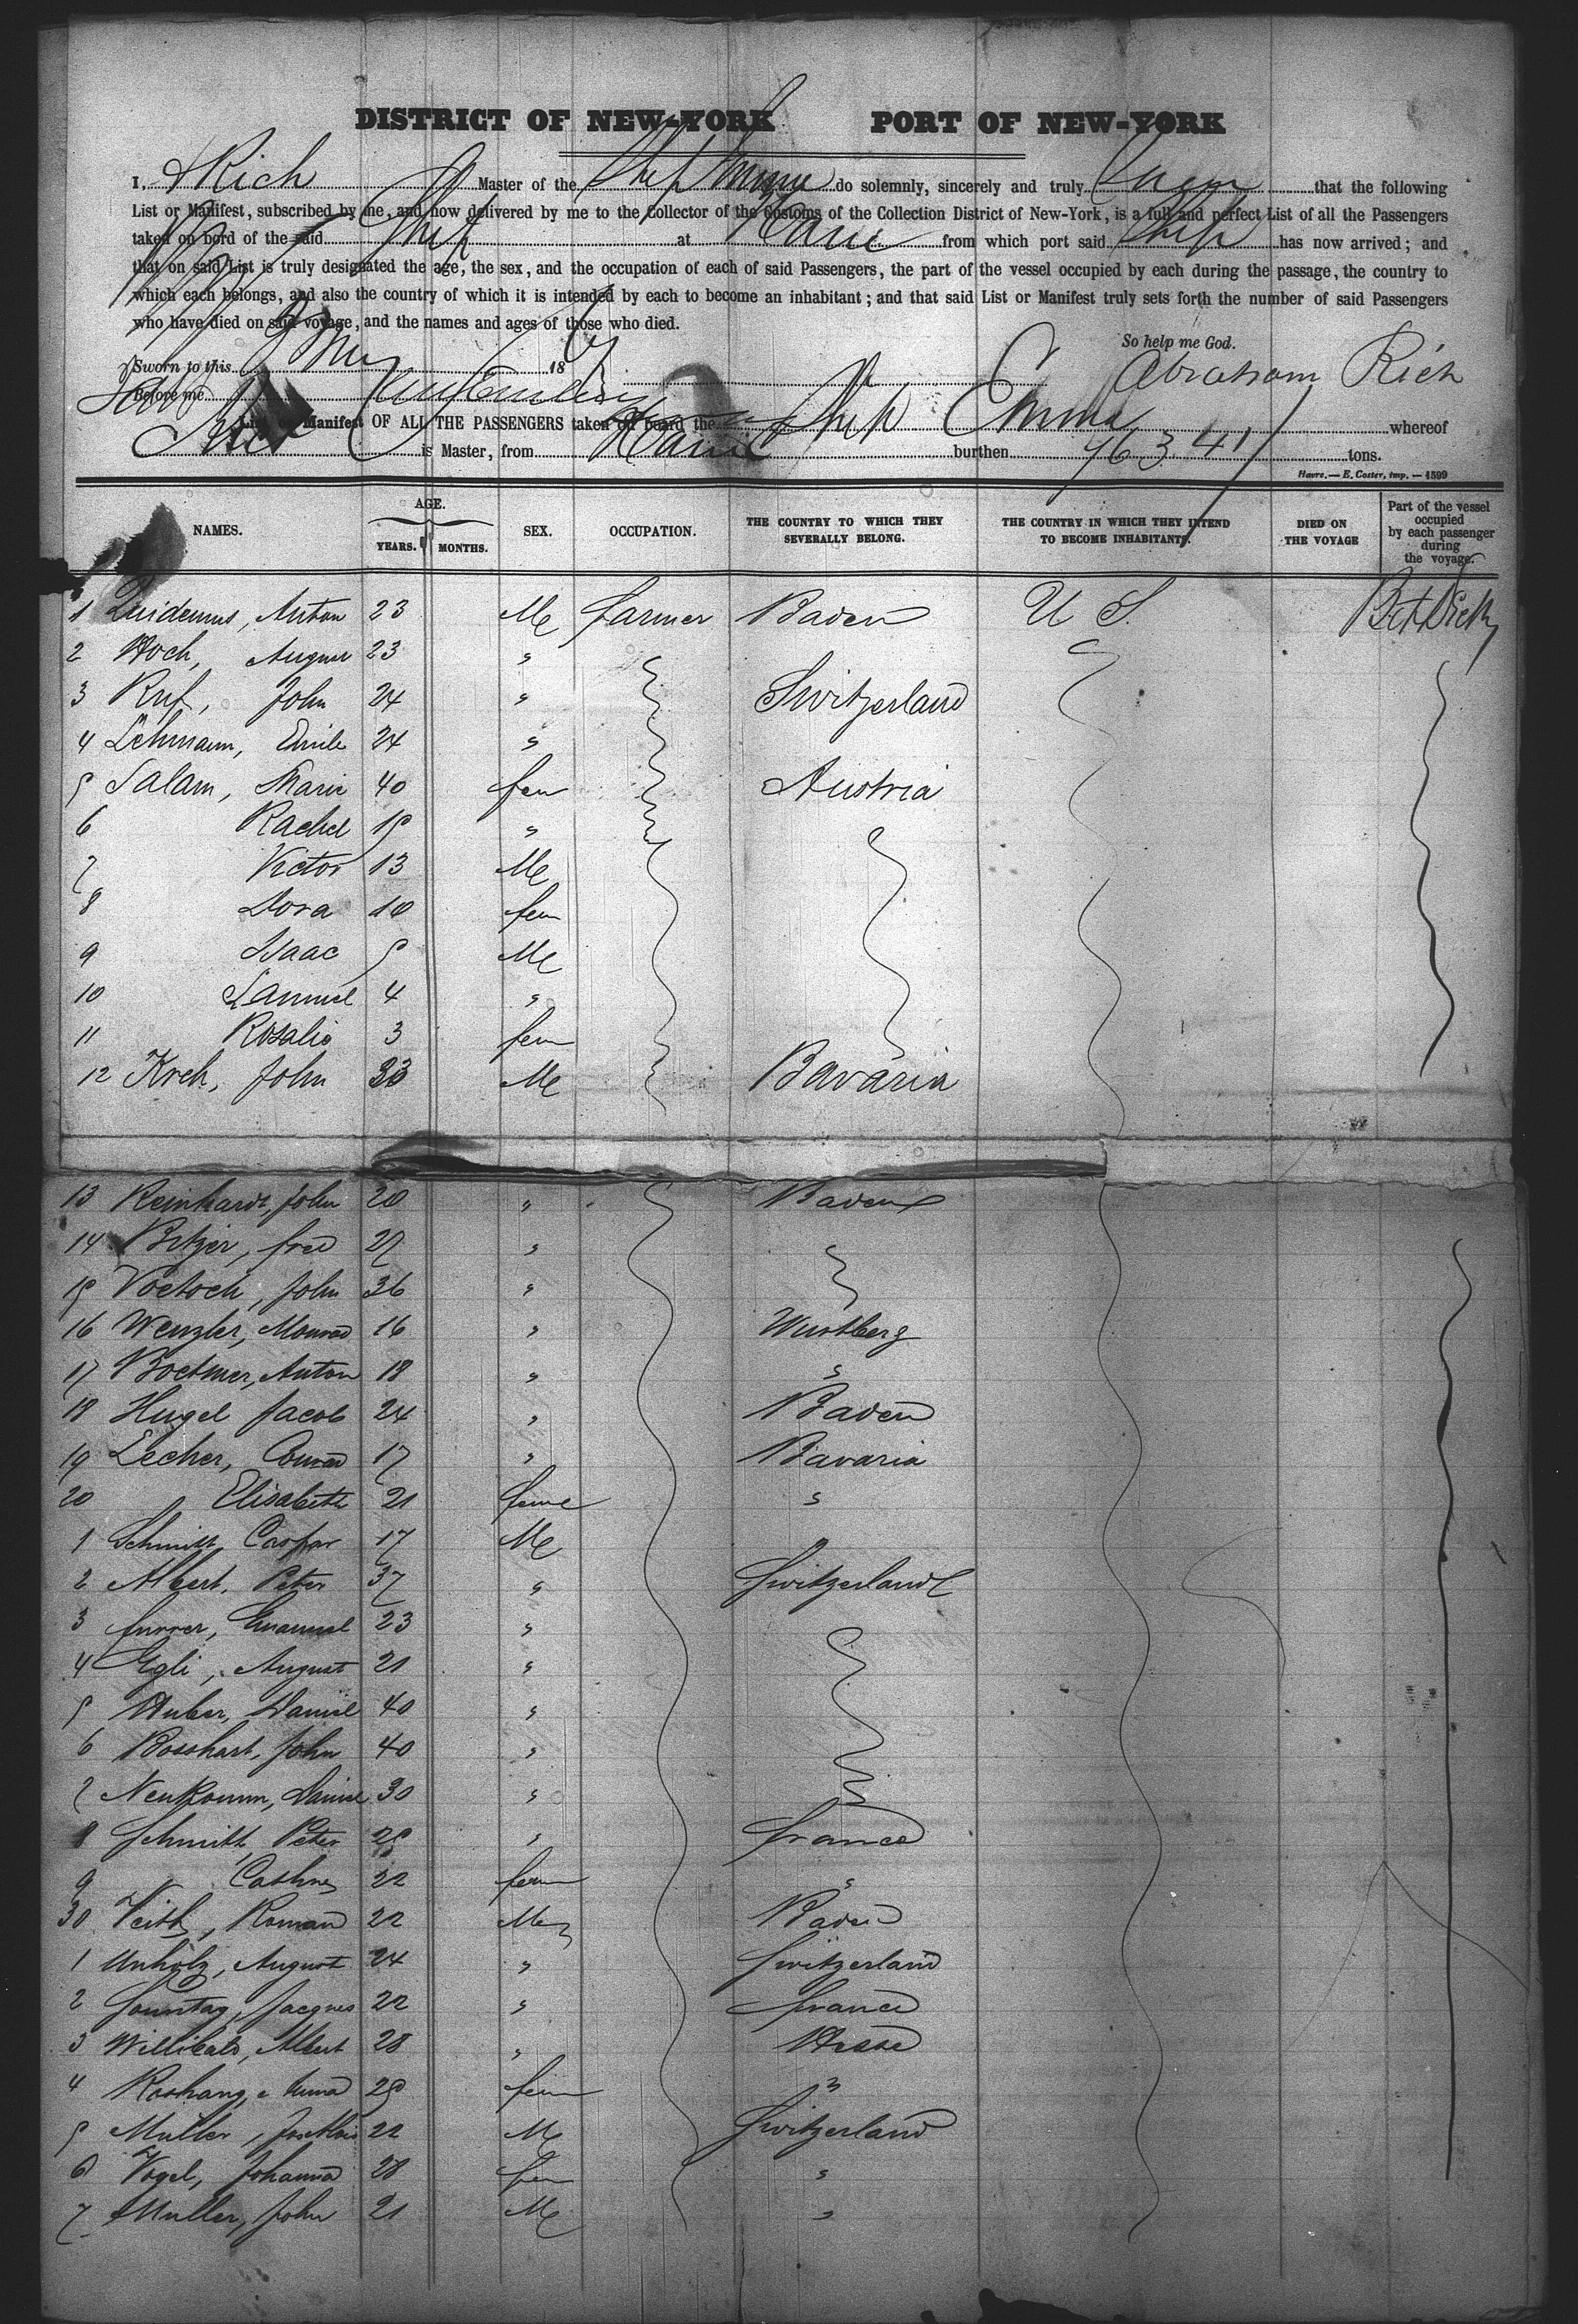 DISTRICT OF NEW-YORK PORT OF NEW-YORK
I, A Rich Master of the Ship Emma do solemnly, sincerely and truly Swear that the following
List or Manifest, subscribed by me, and now delivered by me to the Collector of the Customs of the Collection District of New-York, is a full and perfect List of all the Passengers
taken on bord of the said Ship at Havre from which port said Ship has now arrived; and
that on said List is truly designated the age, the sex, and the occupation of each of said Passengers, the part of the vessel occupied by each during the passage, the country to
which each belongs, and also the country of which it is intended by each to become an inhabitant; and that said List or Manifest truly sets forth the number of said Passengers
who have died on said voyage, and the names and ages of those who died.
So help me God.
Sworn to this 18
Before me Abraham Rich
List or Manifest OF ALL THE PASSENGERS taken on board the Ship Emma whereof
Rich is Master, from Havre burthen 763 41/ tons.
Havre.—E. Coster, imp.—1599
NAMES. AGE. YEARS. MONTHS. SEX. OCCUPATION. THE COUNTRY TO WHICH THEY SEVERALLY BELONG. THE COUNTRY IN WHICH THEY INTEND TO BECOME INHABITANTS. DIED ON THE VOYAGE Part of the vessel occupied by each passenger during the voyage.
1 Anton 23 Me farmer Baden U S. Bet Deck
2 Hoch, August 23 "
3 Ruf, John 24 " Switzerland
4 Lehmann, Emile 24 "
5 Salam, Marie 40 fem Austria
6 Rachel 15 "
7 Victor 13 Me
8 Dora 10 fem
9 Isaac 5 Me
10 Samuel 4 "
11 Rosalie 3 fem
12 Kreh, John 33 Me Bavaria
13 Reinhardt, John 20 " Baden
14 Bitzer, fred 27 "
15 John 36 "
16 Wenzler, 16 " Wurtberg
17 Anton 18 " "
18 Hugel Jacob 24 " Baden
19 Lecher, Conrad 17 " Bavaria
20 Elisabeth 21 feme "
1 Schmitt, Caspar 17 Me
2 Albert, Peter 37 " Switzerland
3 furrer, Emanuel 23 "
4 Egli, August 21 "
5 Huber, Daniel 40 "
6 Bosshart, John 40 "
7 Neukomm, Daniel 30 "
8 Schmitt, Peter 25 " france
9 Cathne 22 fem "
30 Veith, Roman 22 Me Baden
1 Unholz, August 24 " Switzerland
2 Sonntag, Jacques 22 " france
3 Willibald, Albert 28 " Hesse
4 Anna 25 fem "
5 Muller, 22 Me Switzerland
6 Vogel, Johanna 28 fem "
7 Muller, John 21 Me "